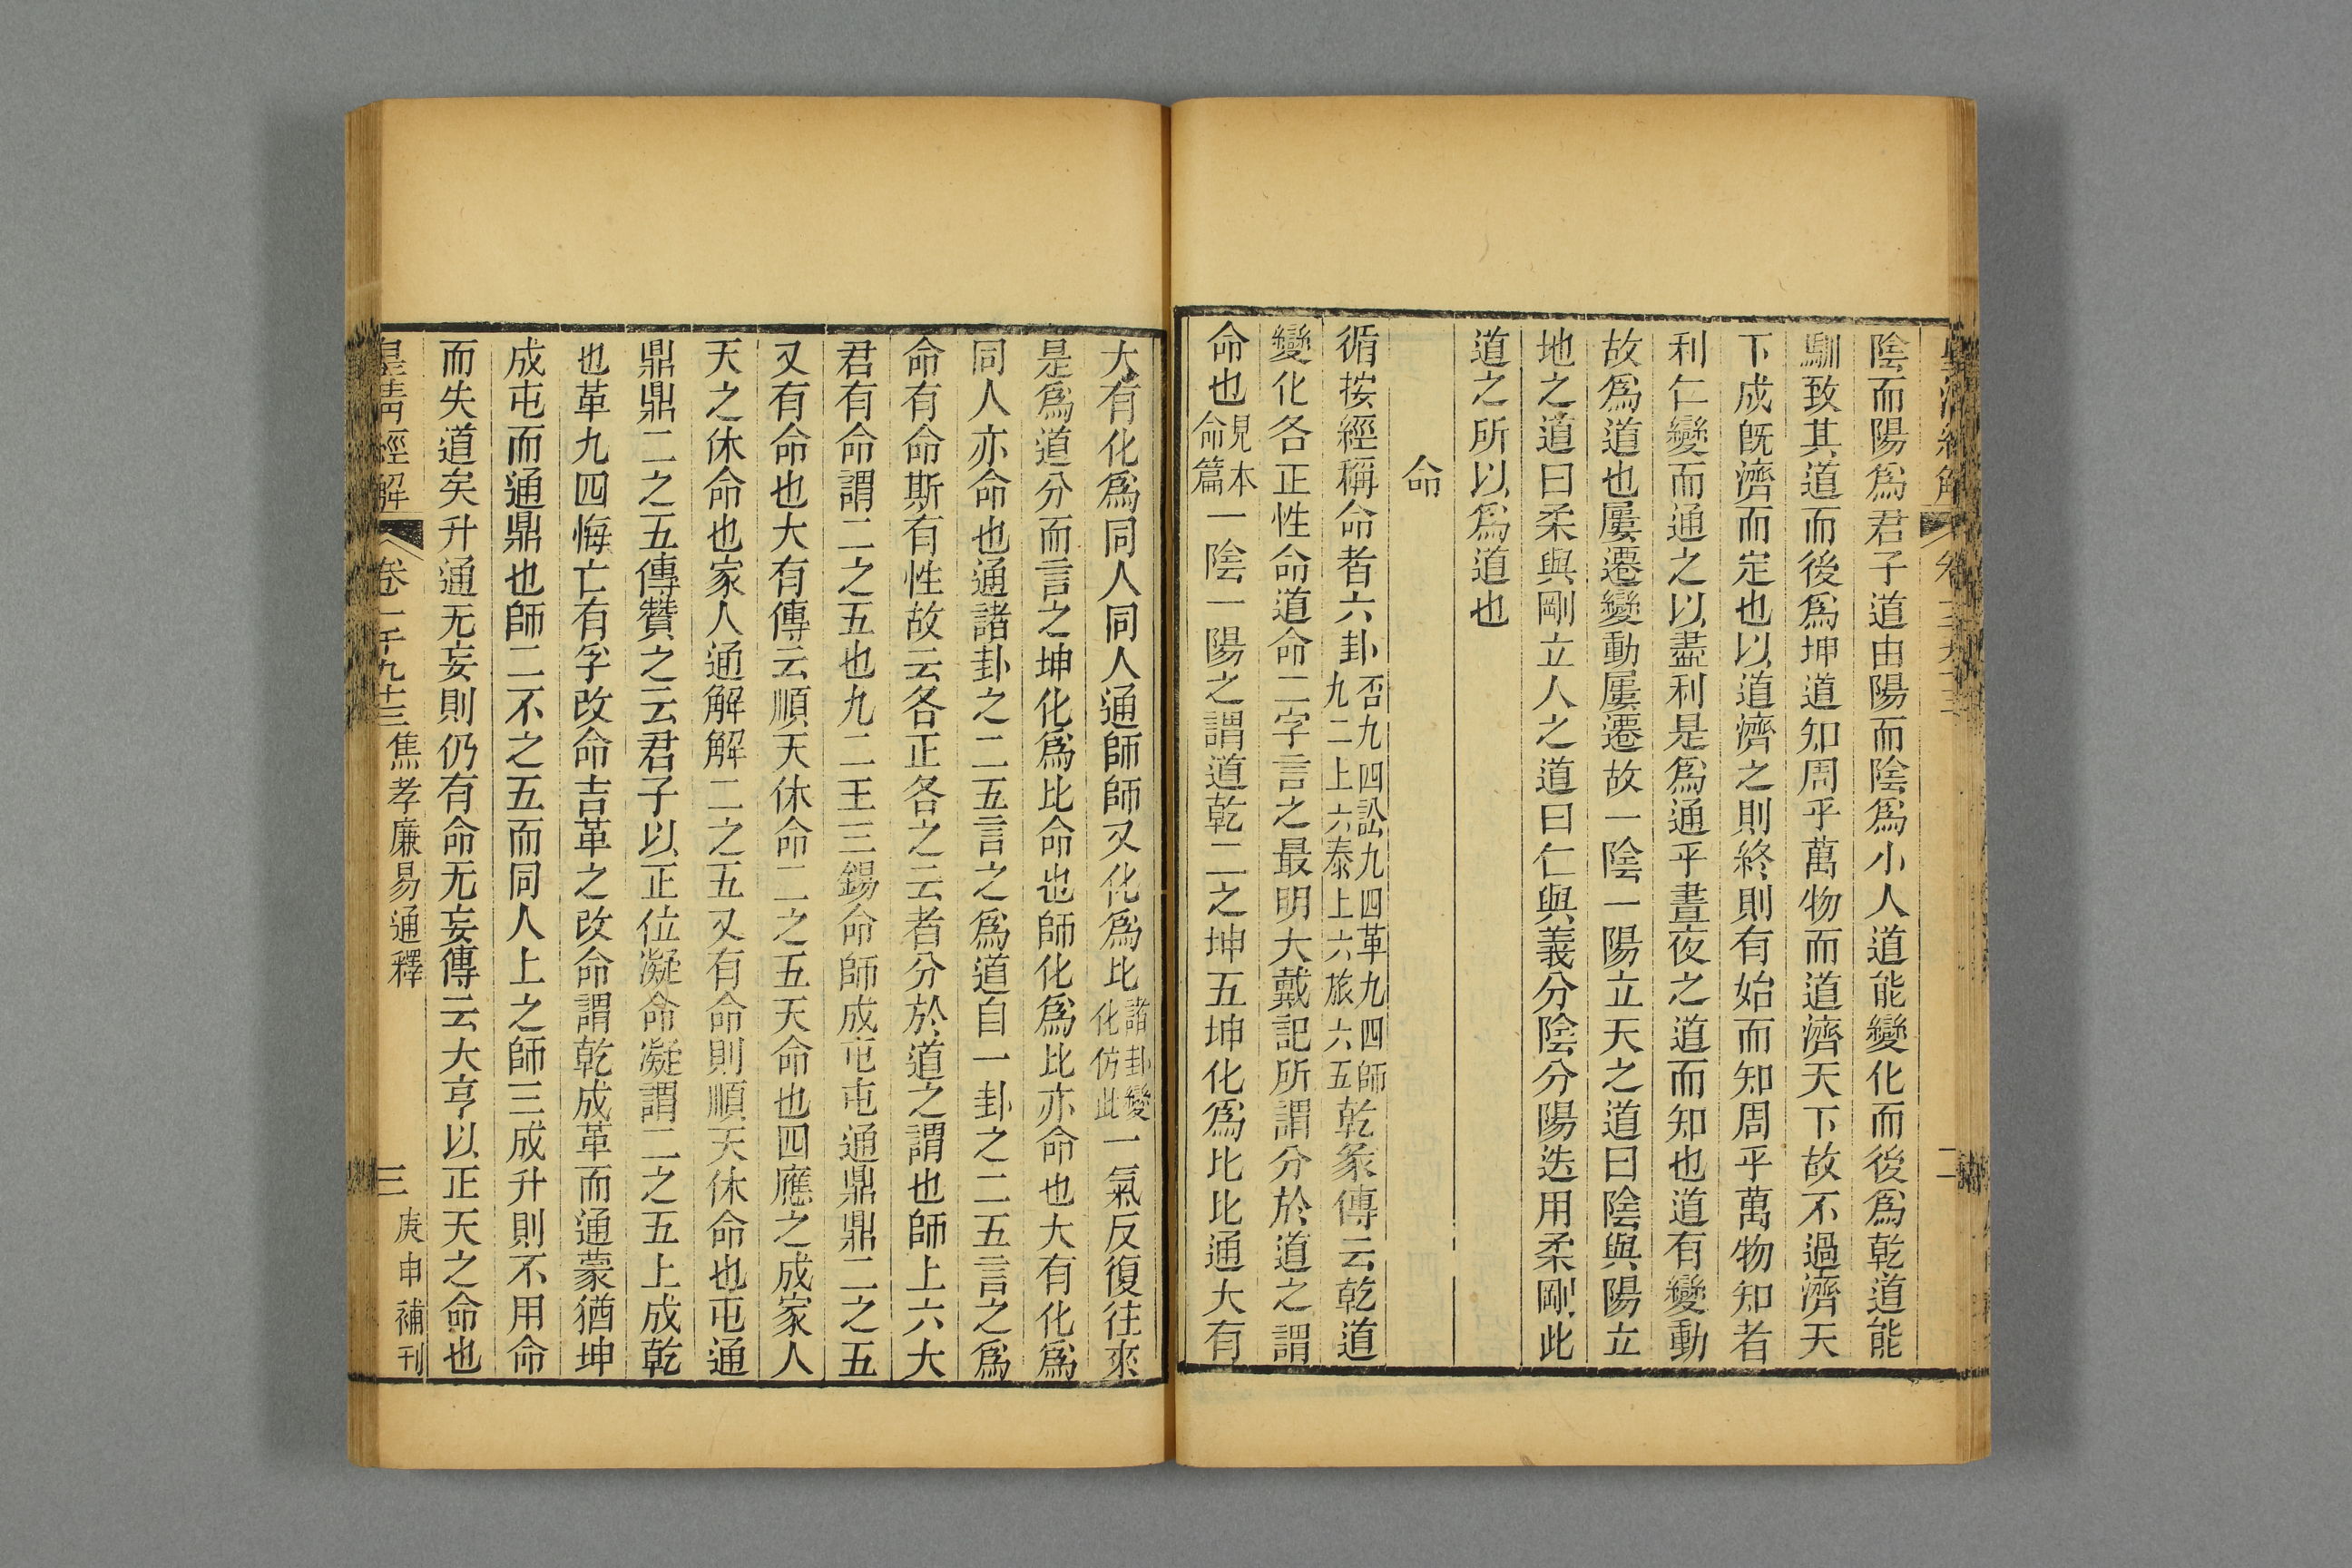 陰而陽爲君子道由陽而陰爲小人道能變化而後爲乾道能
馴致其道而後爲坤道知周乎萬物而道濟天下故不過濟天
下成旣濟而定也以道濟之則終則有始而知周乎萬物知者
利仁變而通之以盡利是爲通乎晝夜之道而知也道有變動
故爲道也屢遷變動屢遷故一陰一陽立天之道曰陰與陽立
地之道曰柔與剛立人之道曰仁與義分陰分陽迭用柔剛此
道之所以爲道也
命
循按經稱命者六卦否九四訟九四革九四師九二上六泰上六旅六五乾彖傳云乾道
變化各正性命道命二字言之最明大戴記所謂分於道之謂
命也見本命篇一陰一陽之謂道乾二之坤五坤化爲比比通大有
大有化爲同人同人通師師又化爲比諸卦變化仿此一氣反復往來
是爲道分而言之坤化爲比命也師化爲比亦命也大有化爲
同人亦命也通諸卦之二五言之爲道自一卦之二五言之爲
命有命斯有性故云各正各之云者分於道之謂也師上六大
君有命謂二之五也九二王三錫命師成屯屯通鼎鼎二之五
又有命也大有傳云順天休命二之五天命也四應之成家人
天之休命也家人通解解二之五又有命則順天休命也屯通
鼎鼎二之五傳贊之云君子以正位凝命凝謂二之五上成乾
也革九四悔亡有孚改命吉革之改命謂乾成革而通蒙猶坤
成屯而通鼎也師二不之五而同人上之師三成升則不用命
而失道矣升通无妄則仍有命无妄傳云大亨以正天之命也
皇清經解 卷一千九十三 焦孝廉易通釋 三 庚申補刊